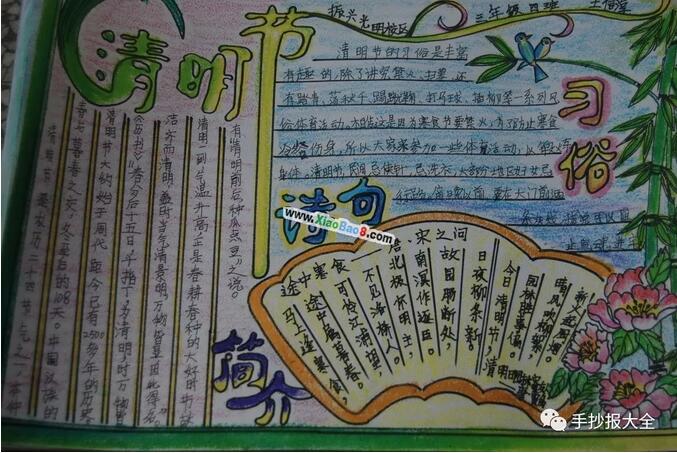 清明节
振兴光明校区 三年级四班
习俗
清明节的习俗是丰富
有趣的,除了讲究禁火、扫墓,还
有踏青、荡秋千、踢蹴鞠、打马球、插柳等一系列风
俗体育活动。相传这是因为寒食节要禁火,为了防止寒食
冷餐伤身,所以大家来参加一些体育活动,以锻炼
身体。清明节,民间忌使针,忌洗衣,大部分地区妇女忌
行路。傍晚以前,要在大门前洒
诗句
www.XiaoBao8.com
简介
有"清明前后,种瓜点豆"之说。
清明一到,气温升高,正是春耕春种的大好时节,故
洁齐而清明,盖时当气清景明,万物皆显,因此得名。"
《历书》:"春分后十五日,斗指丁,为清明,时万物皆
清明节大约始于周代,距今已有2500多年的历史
春与暮春之交,冬至后的108天。中国汉族的
清明节是农历二十四节气之一,在仲
途中寒食 宋之问
马上逢寒食,
途中属暮春。
可怜江浦望,
不见洛桥人。
北极怀明主,
南溟作逐臣。
故园肠断处
日夜柳条新。
今日清明节,
园林胜事偏。
晴风吹柳絮,
新火起厨烟
手抄报大全